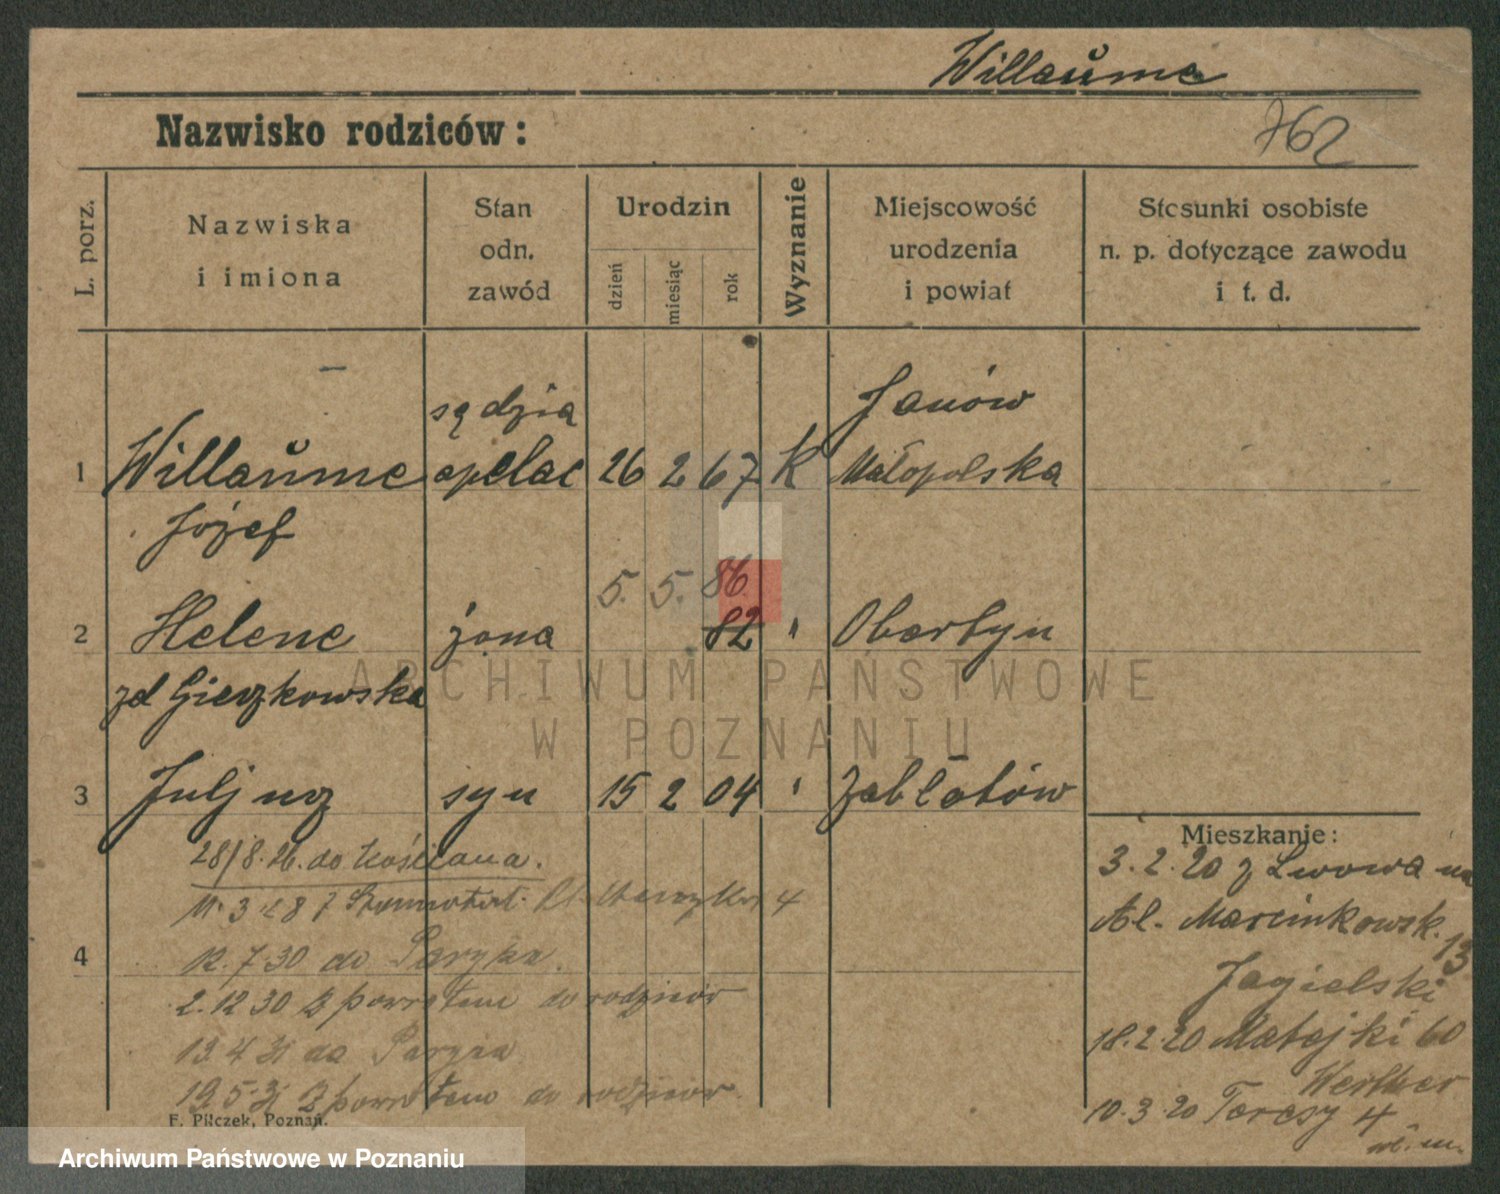 Willaŭme
Nazwisko rodziców:
762
L. porz.
Nazwiska
i imiona
Stan
odn.
zawód
Urodzin
dzień
miesiąc
rok
Wyznanie
Miejscowość
urodzenia
i powiat
Stosunki osobiste
n. p. dotyczące zawodu
i t. d.
sędzia
Janów
1 Willaŭme apelac 26 2 67 K Małopolska
Józef
5. 5. 86.
2 Helene żona 82 " Obertyn
zd Gierzkowska
3 Juljusz syn 15 2 04 " Zabłotów
28/8.26. do Kościana.
4
12.7.30 do Paryża.
2.12 30 z powrotem do rodziców
19.4 31 do Paryża
19.5.31 z powrotem do rodziców
F. Pilczek, Poznań.
Mieszkanie:
3.2.20 z Lwowa na
Al. Marcinkowsk. 13
Jagielski
18.2.20 Matejki 60
Werther
10.3.20 Teresy 4
wł. m.
ARCHIWUM PAŃSTWOWE
W POZNANIU
Archiwum Państwowe w Poznaniu